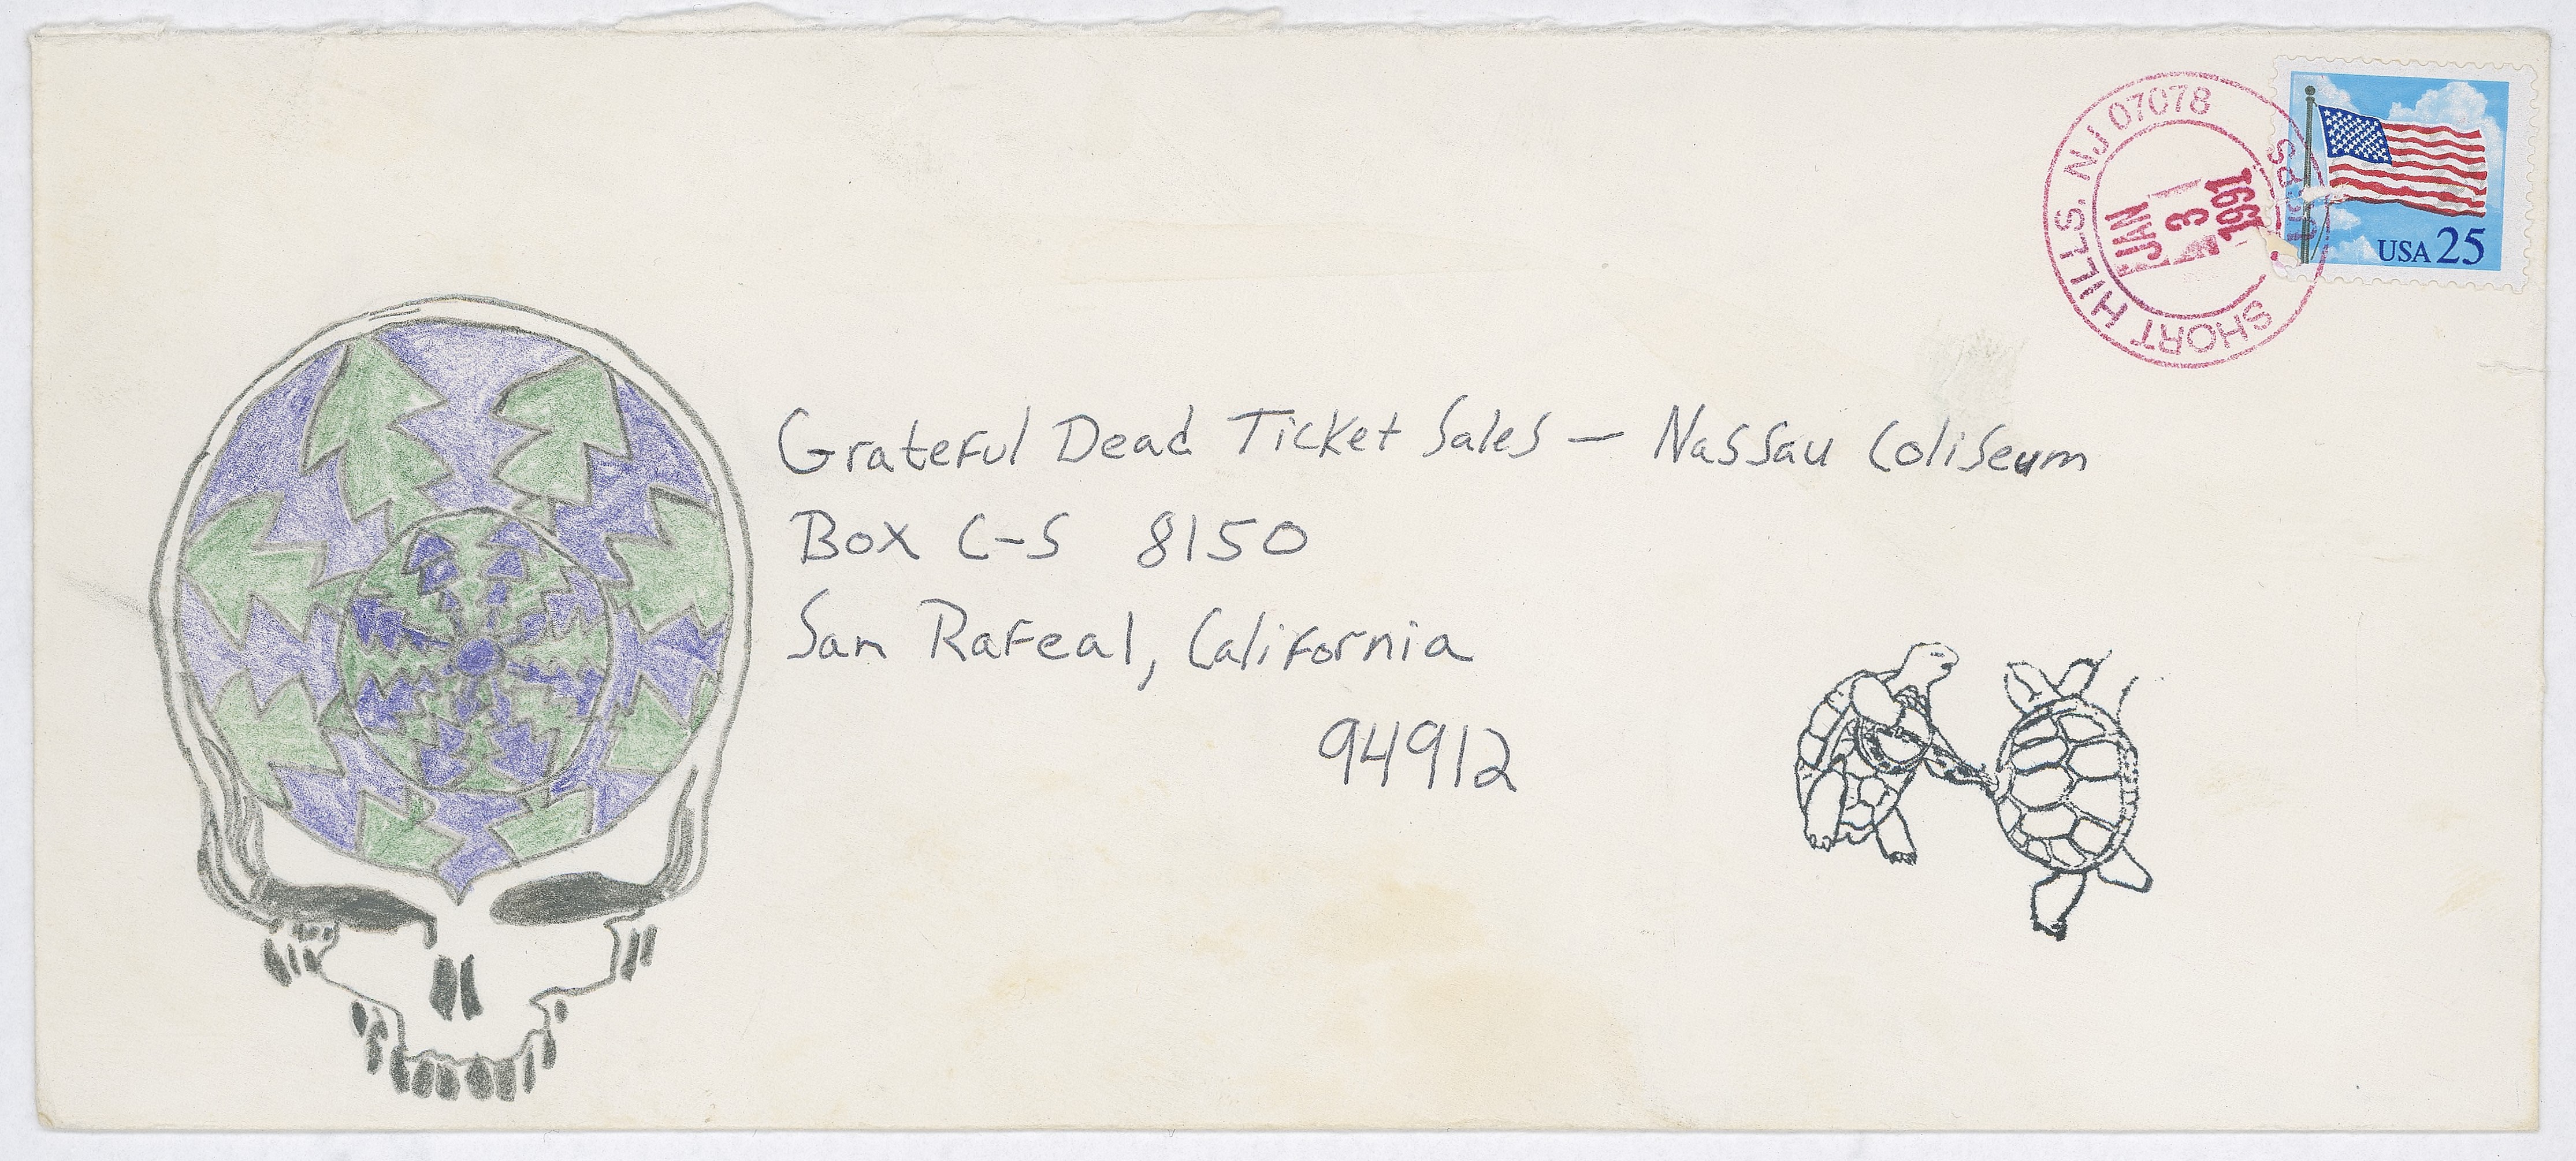 SHORT HILLS, NJ 07078
USPS
JAN
3
1991
USA 25
Grateful Dead Ticket Sales — Nassau Coliseum
Box C-S 8150
San Rafeal, California
94912